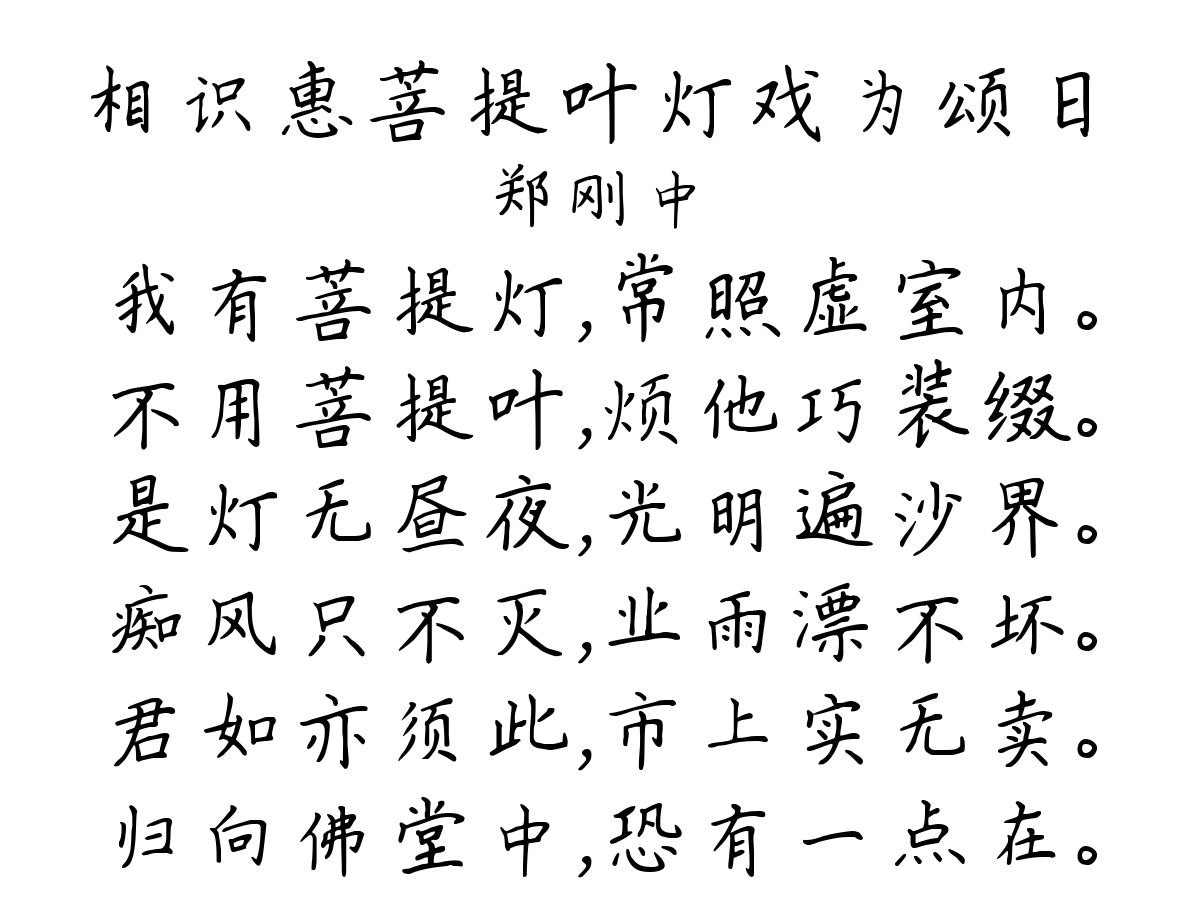 相识惠菩提叶灯戏为颂日
郑刚中
我有菩提灯,常照虚室内。
不用菩提叶,烦他巧装缀。
是灯无昼夜,光明遍沙界。
痴风只不灭,业雨漂不坏。
君如亦须此,市上实无卖。
归向佛堂中,恐有一点在。